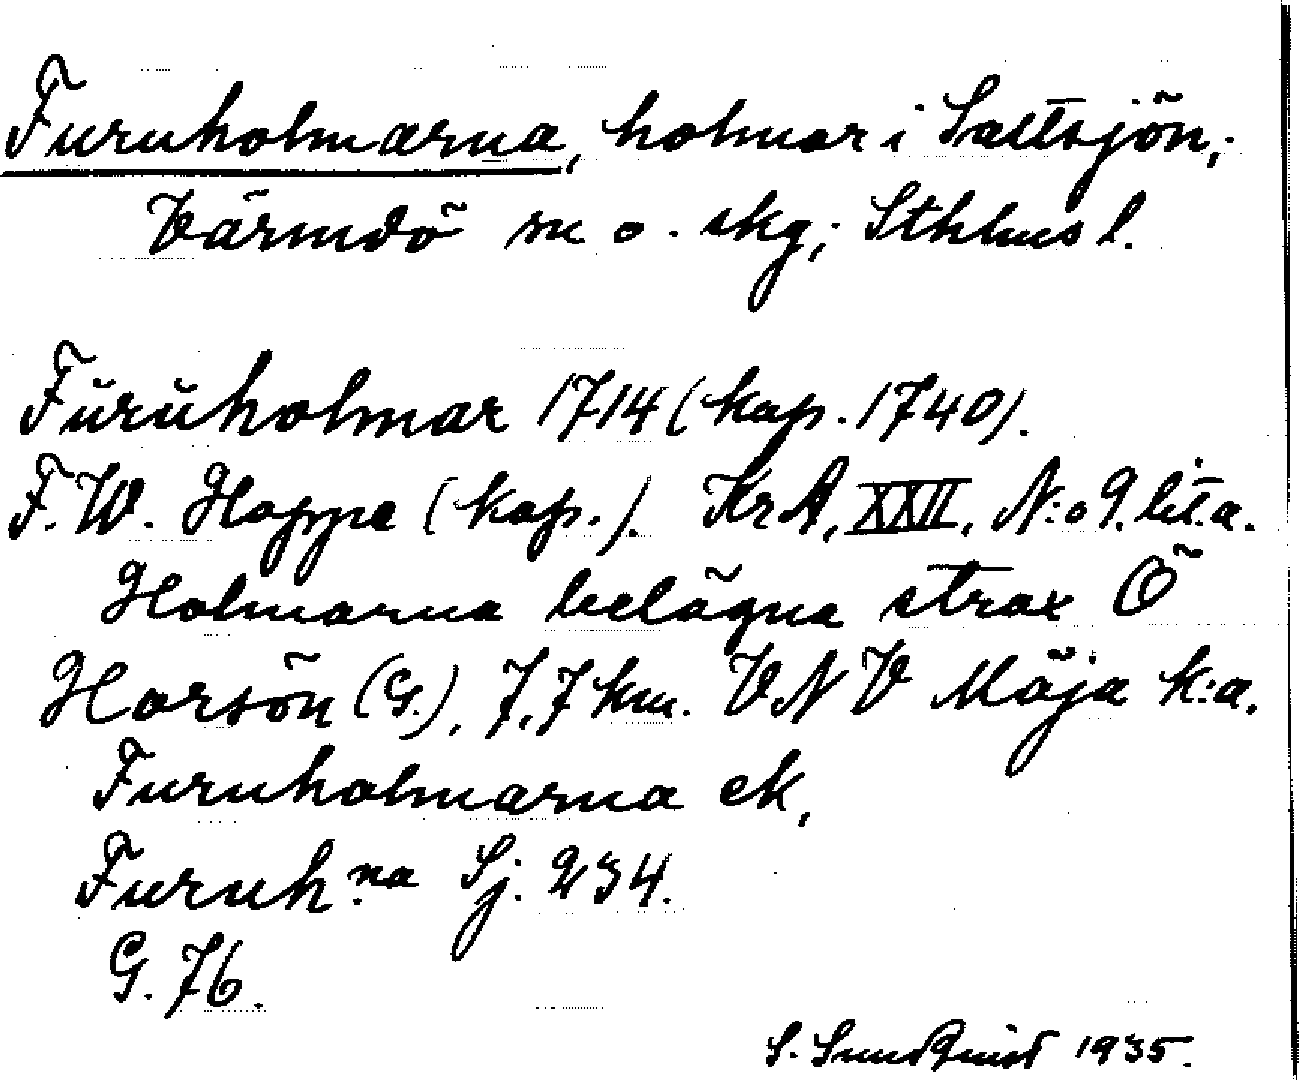 Furuholmarna, holmar i Saltsjön,
Värmdö sn o. skg; Sthlms l.
Furuholmar 1714 (kop. 1740).
F. W. Hoppe (kop.). KrA, XXII, N:o 9. lit. a.
Holmarna belägna strax Ö
Horsön (G.), 7,7 km. VNV Möja k:a.
Furuholmarna ek,
Furuh.na Sj. 234.
G. 76.
S. Sundquist 1935.